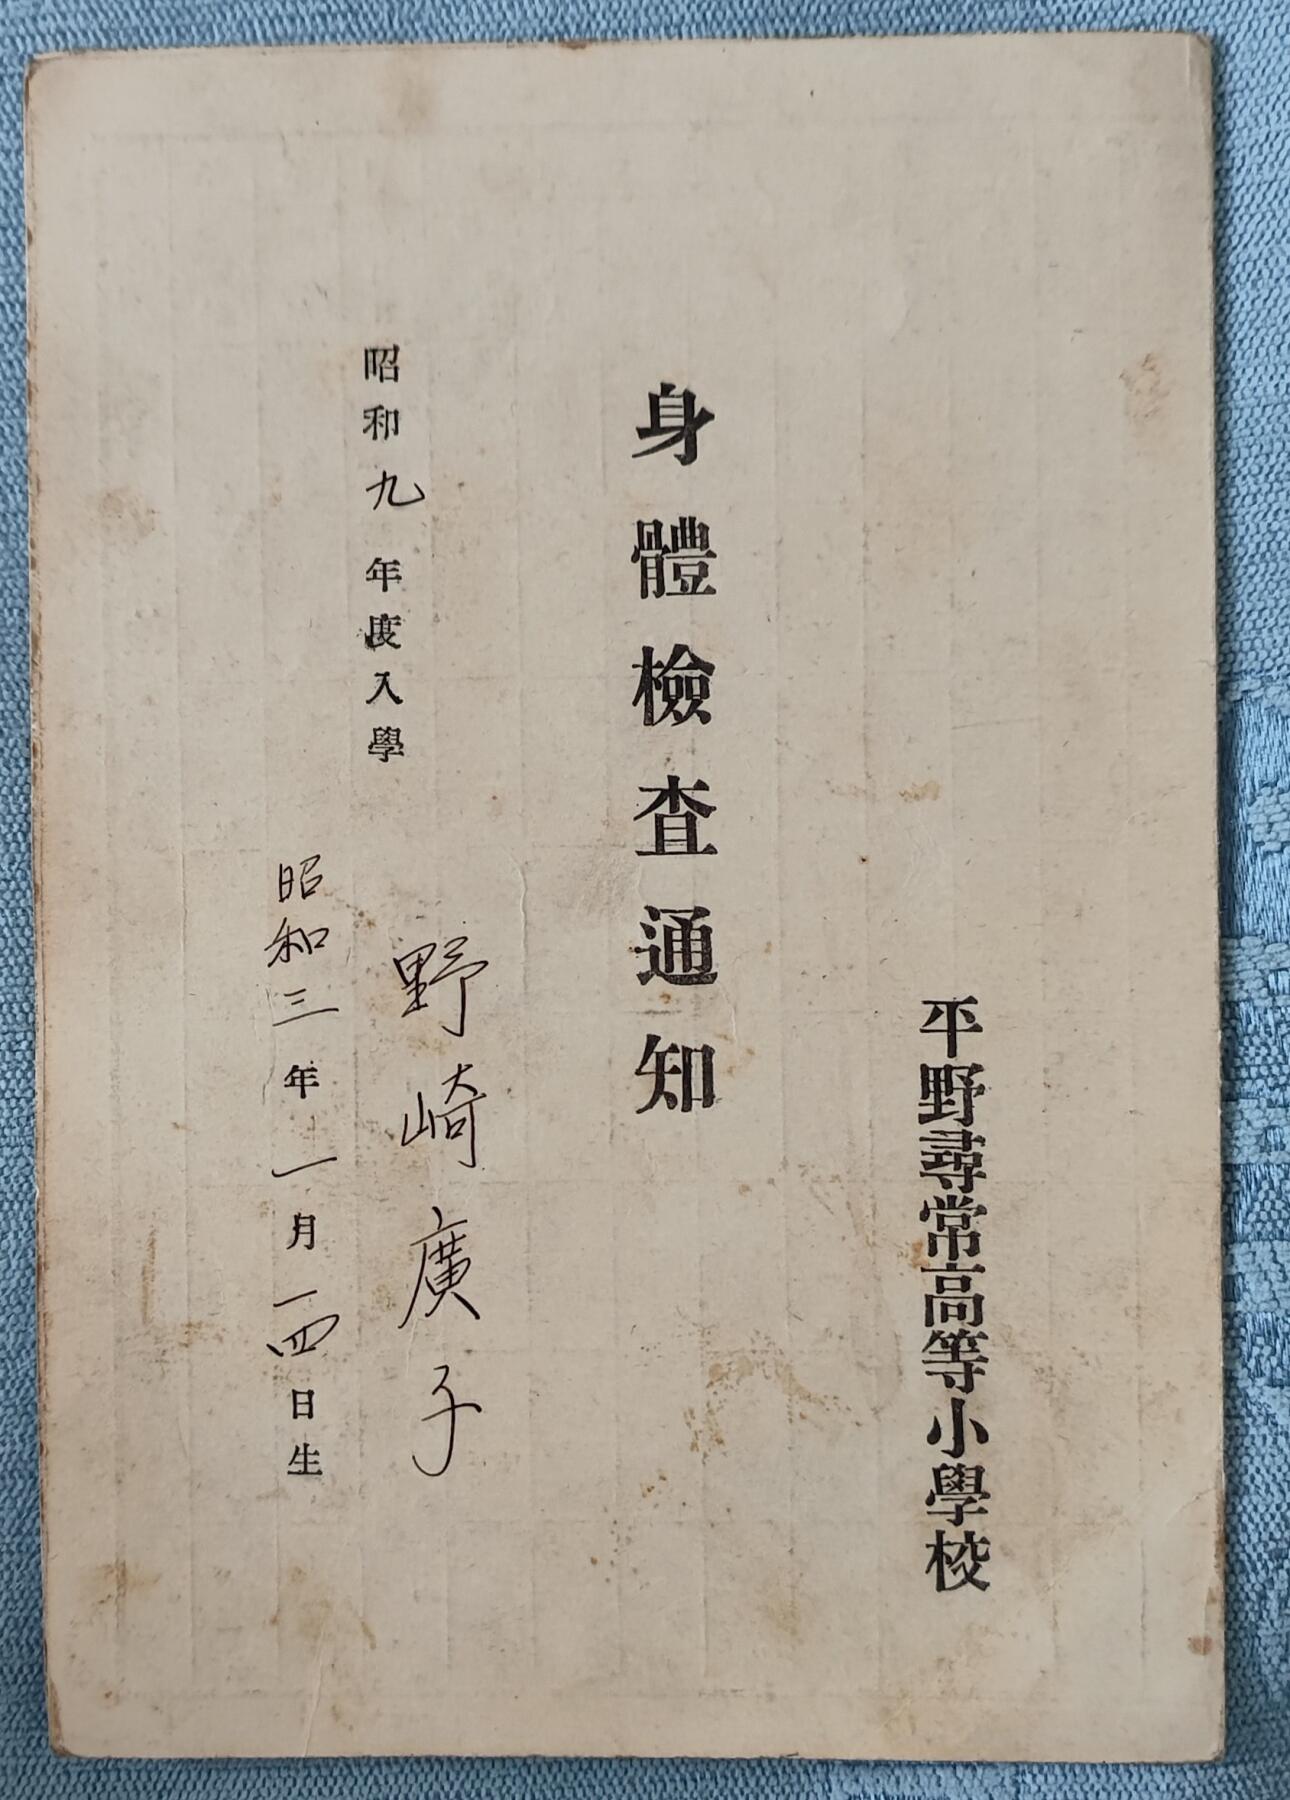 平野尋常高等小學校
身體檢査通知
昭和九年度入學
野崎廣子
昭和三年一月一四日生